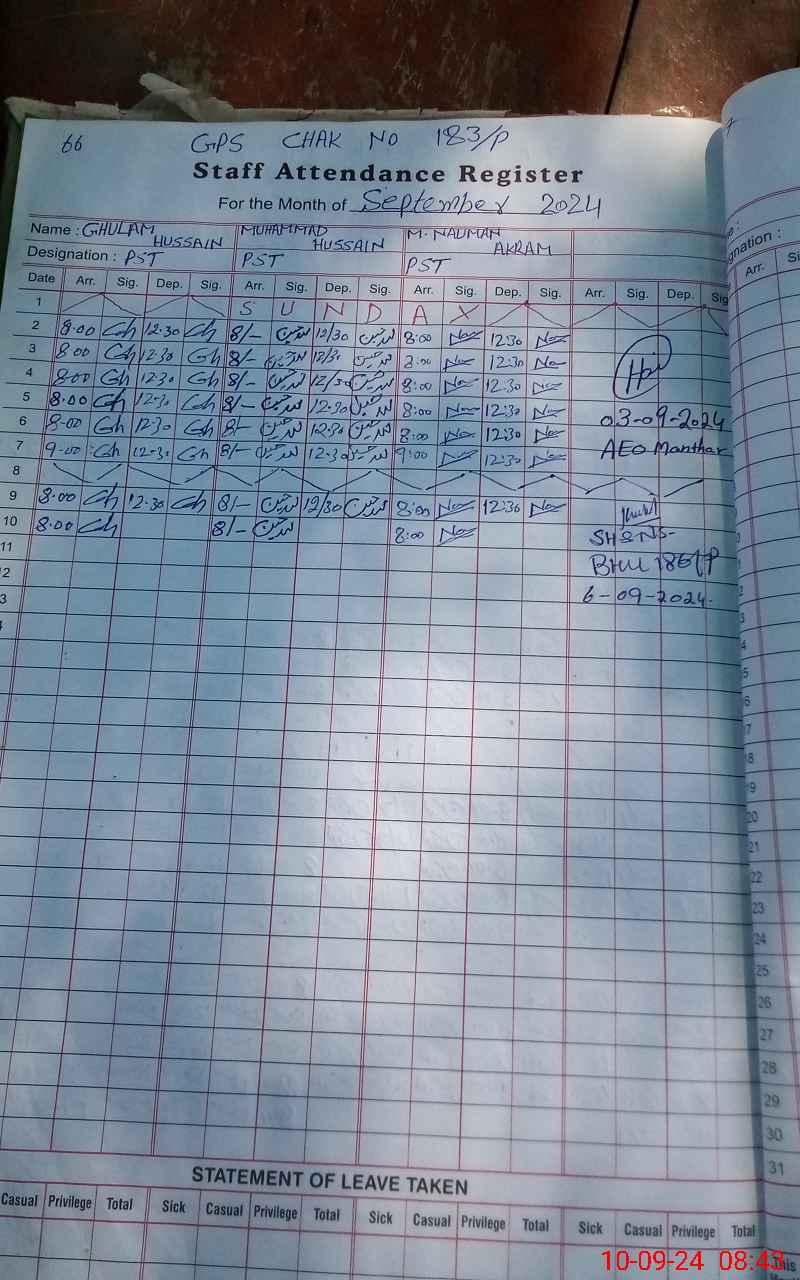 66 GPS CHAK NO 183/P
Staff Attendance Register
For the Month of September 2024
Name : GHULAM HUSSAIN MUHAMMAD HUSSAIN M. NAUMAN AKRAM
Designation : PST PST PST
Date Arr. Sig. Dep. Sig. Arr. Sig. Dep. Sig. Arr. Sig. Dep. Sig. Arr. Sig. Dep. Sig
1 S U N D A Y
2 8.00 Gh 12.30 Gh 8/- 12/30 8:00 12:30
3 8.00 Gh 12.30 Gh 8/- 12/30 8:00 12:30
4 8.00 Gh 12.30 Gh 8/- 12/30 8:00 12:30
5 8.00 Gh 12.30 Gh 8/- 12.30 8:00 12:30
03-09-2024
6 8.00 Gh 12.30 Gh 8/- 12.30 8:00 12:30
AEO Manthar
7 9.00 Gh 12.30 Gh 8/- 12.30 9:00 12:30
8
9 8.00 Gh 12.30 Gh 8/- 12/30 8:00 12:30
10 8.00 Gh 8/- 8:00
SH&NS-
11
BHU 186/P
2
6-09-2024.
3
Arr. Si
gnation :
20
21
22
23
24
25
26
27
28
29
30
31
STATEMENT OF LEAVE TAKEN
Casual Privilege Total Sick Casual Privilege Total Sick Casual Privilege Total Sick Casual Privilege Total
This
10-09-24 08:43